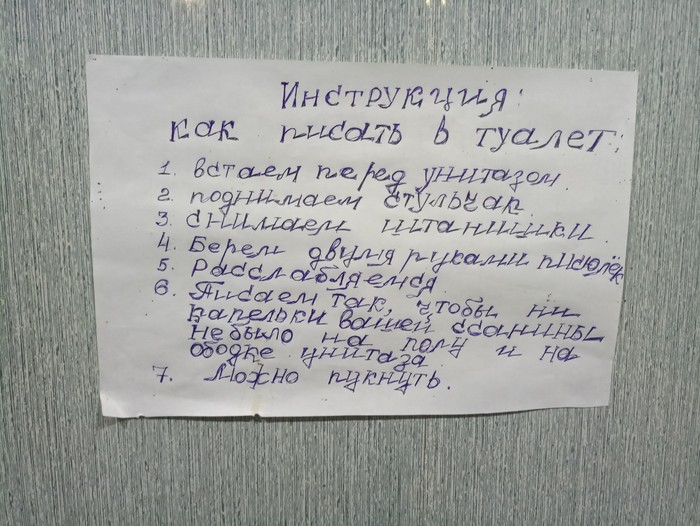 Инструкция:
как писать в туалет:
1. встаем перед унитазом.
2. поднимаем стульчак
3. снимаем штанишки.
4. Берем двумя руками писюлёк
5. Расслабляемся.
6. Писаем так, чтобы ни
капельки вашей ссанины
не было на полу и на
ободке унитаза
7. Можно пукнуть.